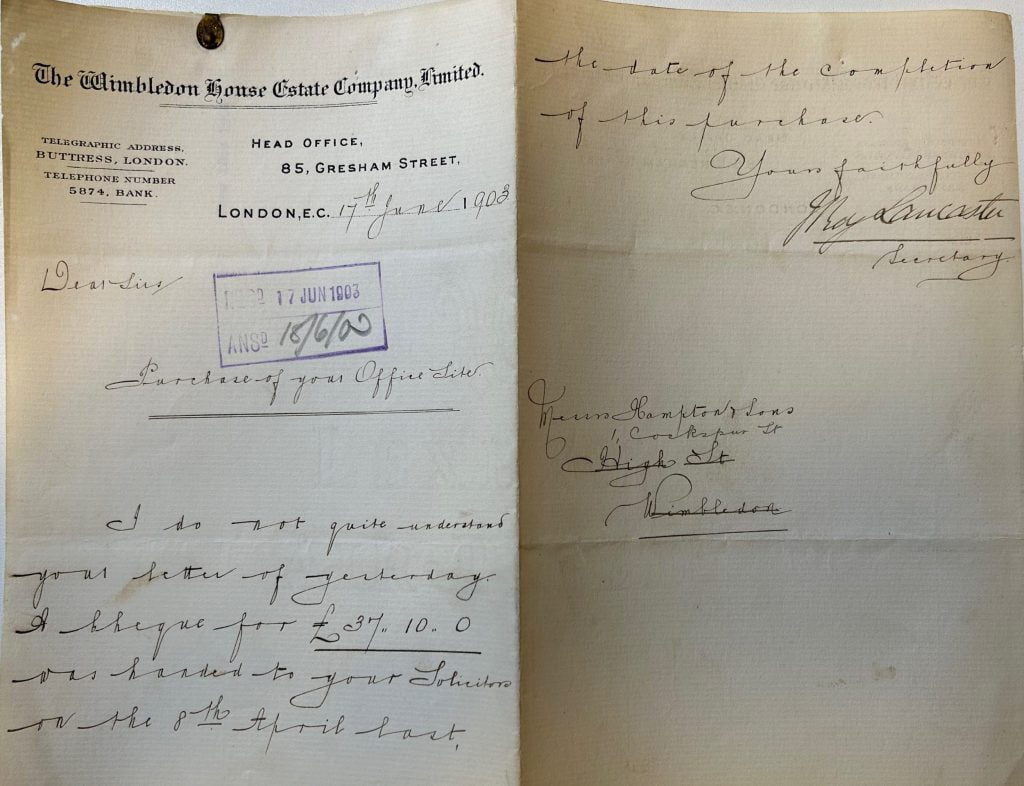 The Wimbledon House Estate Company, Limited.
TELEGRAPHIC ADDRESS,
BUTTRESS, LONDON.
TELEPHONE NUMBER
5874, BANK.
HEAD OFFICE,
85, GRESHAM STREET,
LONDON, E.C. 17th June 1903
Dear Sirs
RECD 17 JUN 1903
ANSD 18/6/03
Purchase of your Office Site.
I do not quite understand
your letter of yesterday.
A cheque for £37.. 10.. 0
was handed to your Solicitors
on the 8th April last,
the date of the completion
of this purchase.
Yours faithfully
Lancaster
Secretary
Messrs Hampton & Sons
1, Cockspur St
High St
Wimbledon